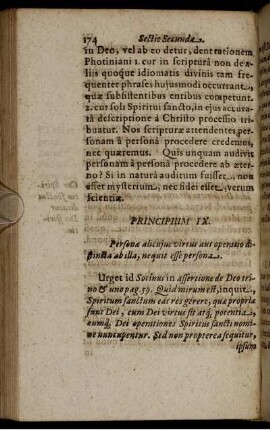 174 Sectio Secunda.
in Deo, vel ab eo detur, dent rationem
Photiniani 1. cur in scripturâ non de a-
liis quoque idiomatis divinis tam fre-
quenter phrases hujusmodi occurrant,
quæ subsistentibus entibus competunt.
2. cur soli Spiritui sancto, in ejus accura-
tâ descriptione à Christo processio tri-
buatur. Nos scripturæ attendentes per-
sonam à personâ procedere credemus,
nec quæremus. Quis unquam audivit
personam à personâ procedere ab æter-
no? Si in naturâ auditum fuisset, non
esset mysterium, nec fidei esset, verum
scientiæ.
PRINCIPIUM IX.
Personæ alicujus virtus aut operatio di-
stincta ab illa, nequit esse persona.
Urget id Socinus in assertione de Deo tri-
no & uno pag. 59. Quid mirum est, inquit,
Spiritum sanctum eas res gerere, quæ propriæ
sunt Dei, cum Dei virtus sit atq; potentia,
eumq; Dei operationes Spiritus sancti nomi-
ne nuncupentur. Sed non propterea sequitur,
ipsum